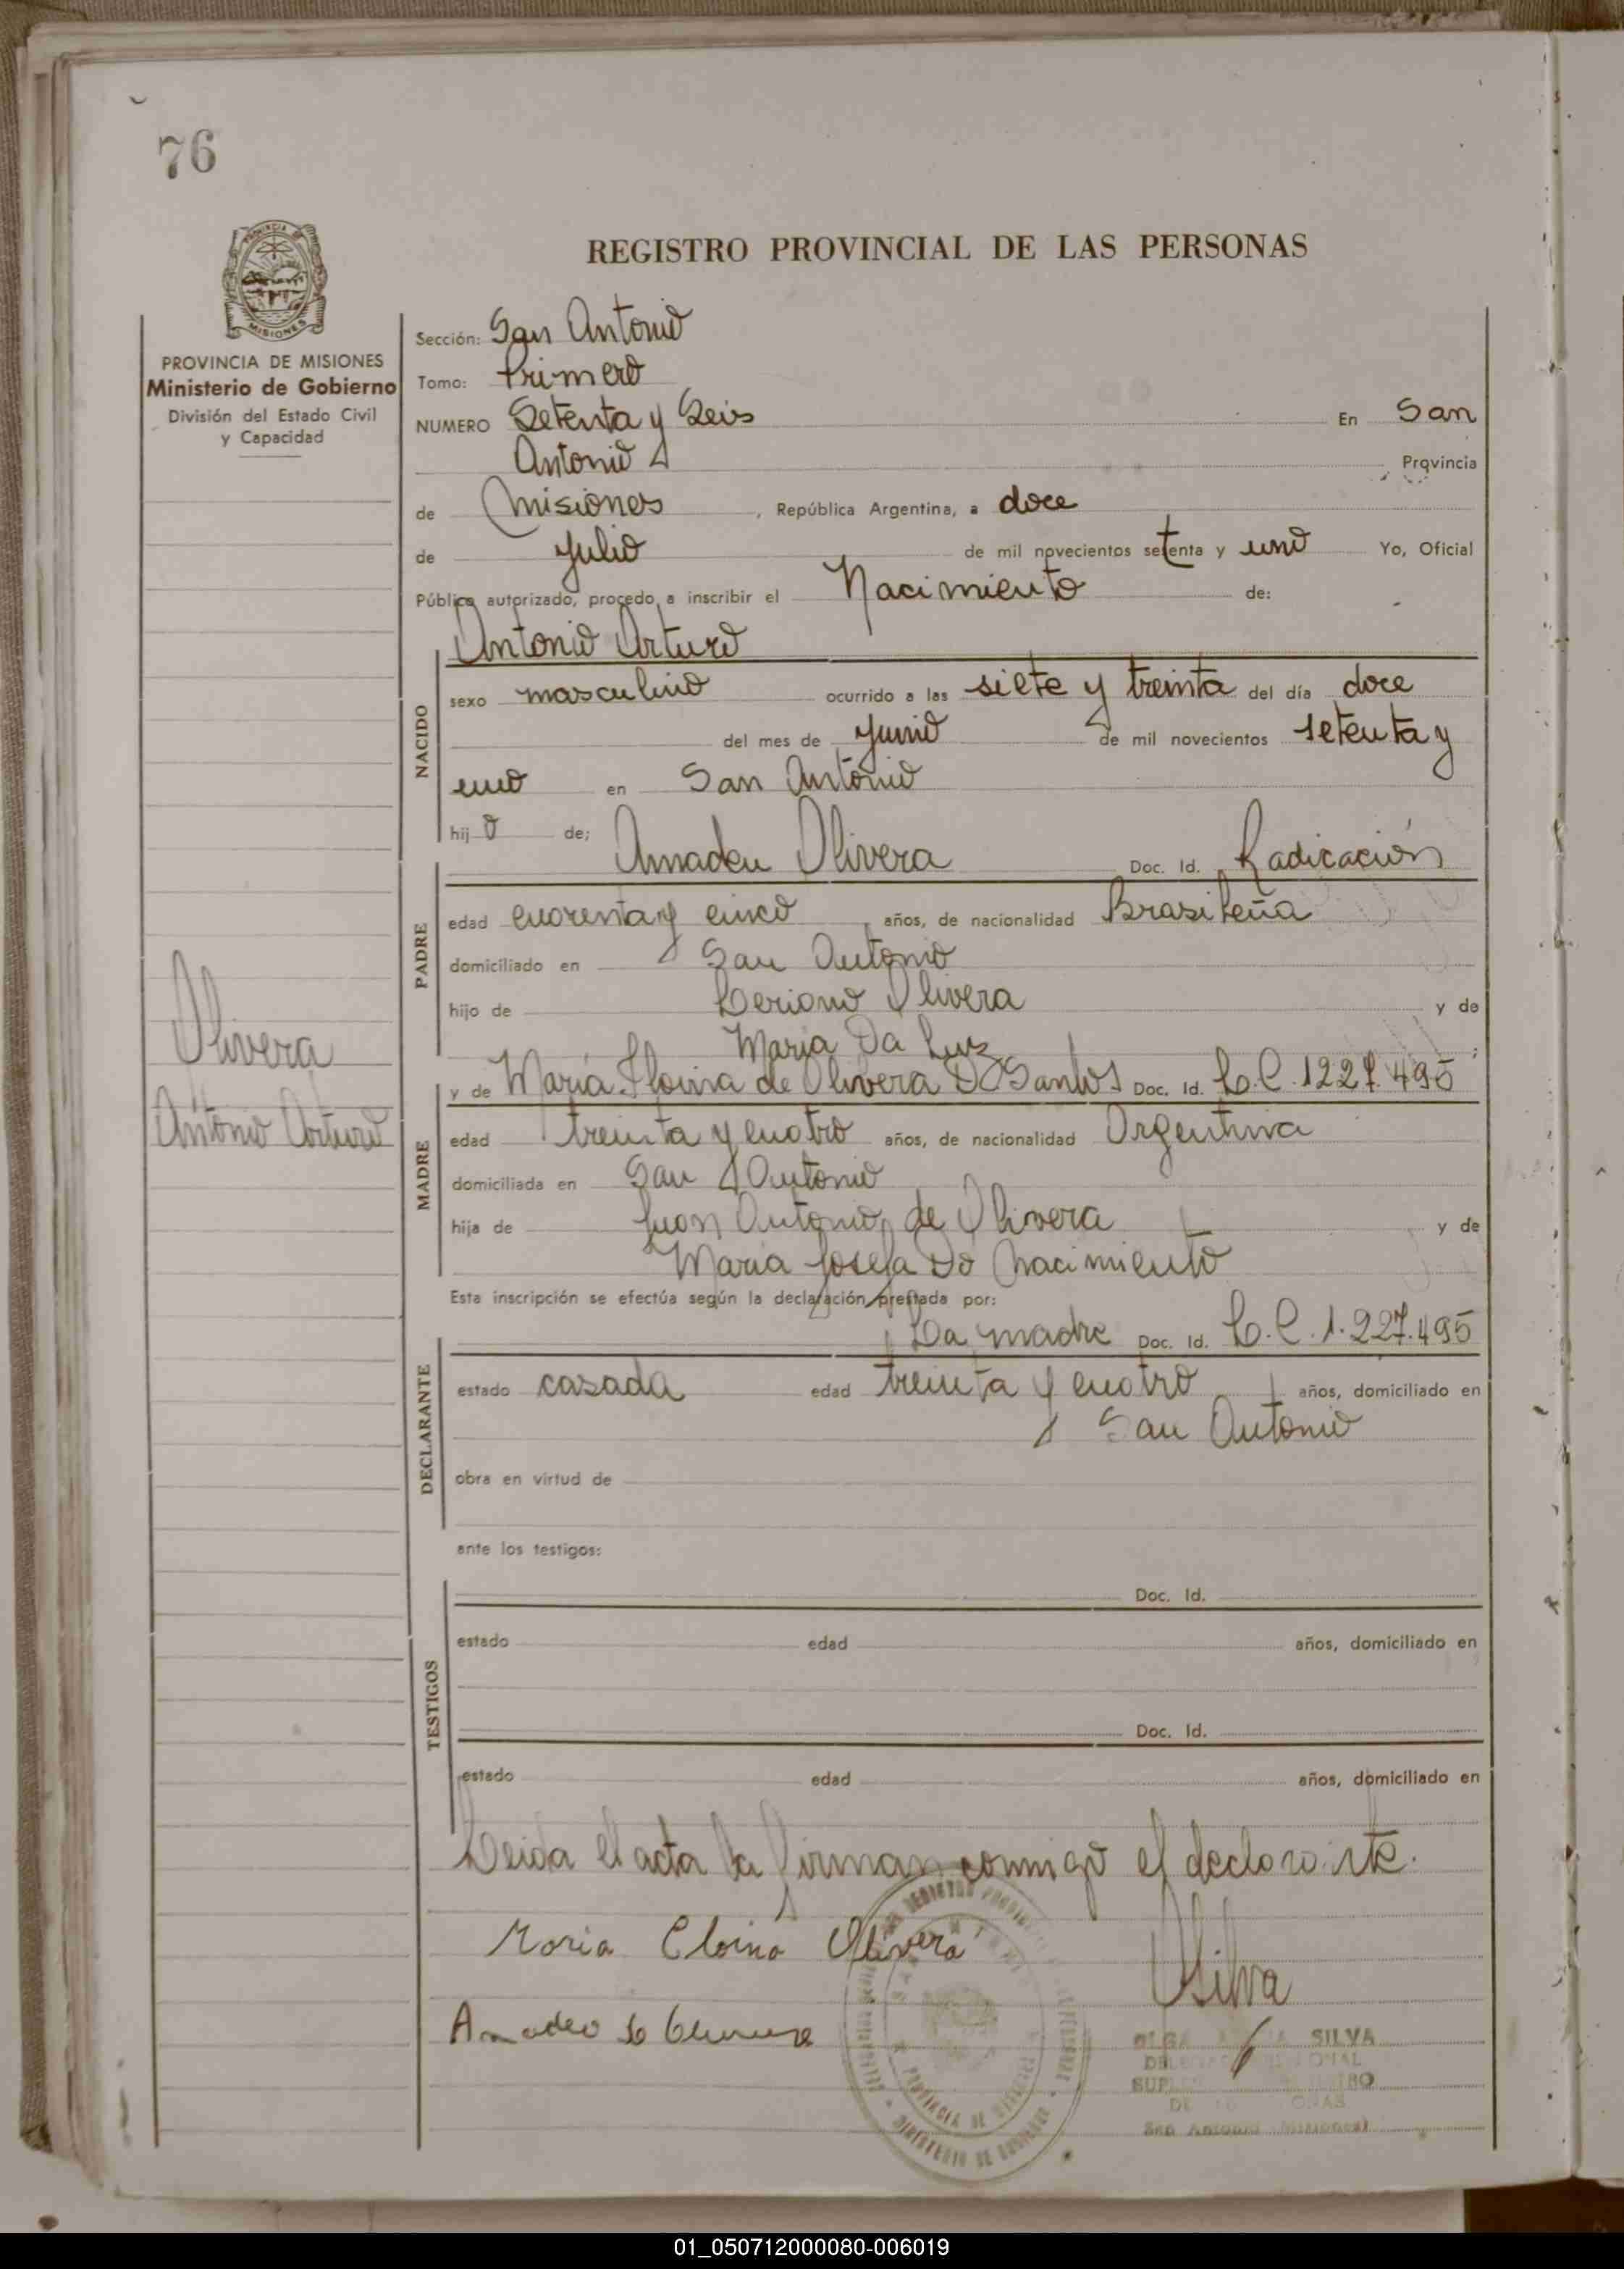 76
REGISTRO PROVINCIAL DE LAS PERSONAS
PROVINCIA DE MISIONES
Ministerio de Gobierno
División del Estado Civil
y Capacidad
Sección: San Antonio
Tomo: Primero
NUMERO Setenta y Seis En San
Antonio Provincia
de Misiones, República Argentina, a doce
de Julio de mil novecientos setenta y uno Yo, Oficial
Público autorizado, procedo a inscribir el Nacimiento de:
Antonio Arturo
NACIDO
sexo masculino ocurrido a las siete y treinta del día doce
del mes de junio de mil novecientos setenta y
uno en San Antonio
hijo de;
Amadeu Olivera Doc. Id. Radicación
PADRE
edad cuarenta y cinco años, de nacionalidad Brasileña
domiciliado en San Antonio
hijo de Olivera y de
Maria Da Luz;
y de María de Olivera Do Santos Doc. Id. L.C. 1227.495
MADRE
edad treinta y cuatro años, de nacionalidad Argentina
domiciliada en San Antonio
hija de Juan Antonio de Olivera y de
Maria Josefa Do Nacimiento
Esta inscripción se efectúa según la declaración prestada por:
La madre Doc. Id. L.C. 1.227.495
DECLARANTE
estado casada edad treinta y cuatro años, domiciliado en
San Antonio
obra en virtud de
ante los testigos:
Doc. Id.
TESTIGOS
estado edad años, domiciliado en
Doc. Id.
estado edad años, domiciliado en
Leida el acta la firman conmigo el declarante.
Maria Eloina Olivera
Silva
Amadeo
OLGA SILVA
San Antonio (Misiones)
Olivera
Antonio Arturo
01_050712000080-006019